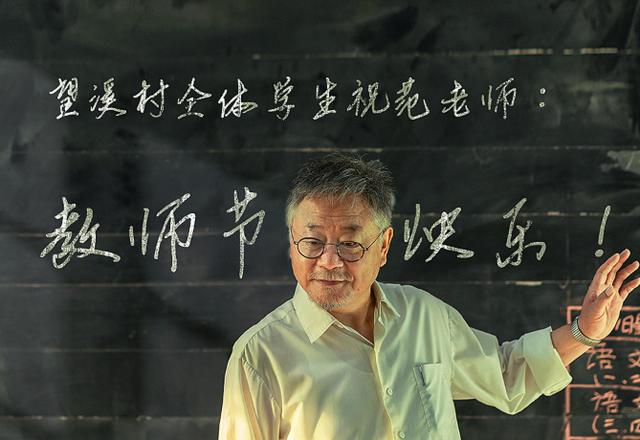 望溪村全体学生祝范老师：
教师节快乐！
语文
语